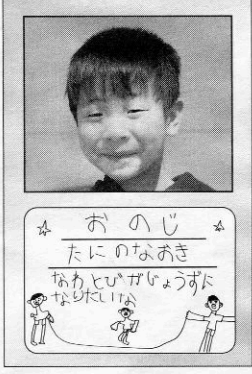 おのじ
たにのなおき
なわとびがじょうずに
なりたいな